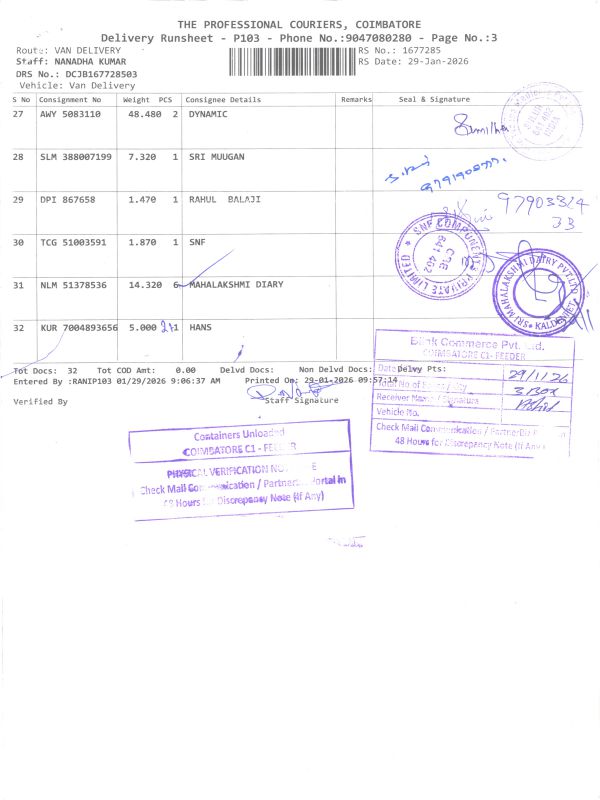 THE PROFESSIONAL COURIERS, COIMBATORE
Delivery Runsheet - P103 - Phone No.:9047080280 - Page No.:3
Route: VAN DELIVERY
RS No.: 1677285
Staff: NANADHA KUMAR
RS Date: 29-Jan-2026
DRS No.: DCJB167728503
Vehicle: Van Delivery
S No Consignment No Weight PCS Consignee Details Remarks Seal & Signature
27 AWY 5083110 48.480 2 DYNAMIC
28 SLM 388007199 7.320 1 SRI MUUGAN
29 DPI 867658 1.470 1 RAHUL BALAJI
97903314
33
30 TCG 51003591 1.870 1 SNF
SNF COMPONENTS PRIVATE LIMITED
CME
641 402
31 NLM 51378536 14.320 6 MAHALAKSHMI DIARY
SRI MAHALAKSHMI DAIRY PVT LTD
32 KUR 7004893656 5.000 1 HANS
Tot Docs: 32 Tot COD Amt: 0.00 Delvd Docs: Non Delvd Docs: Delvy Pts:
Entered By :RANIP103 01/29/2026 9:06:37 AM Printed On: 29-01-2026 09:57:14
Verified By
Staff Signature
Blink Commerce Pvt. Ltd.
COIMBATORE C1- FEEDER
Date
29/1/26
3 Box
Receiver Name / Signature
Vehicle No.
Check Mail Communication /
48 Hours for Discrepancy Note (If Any
Containers Unloaded
COIMBATORE C1 - FEEDER
PHYSICAL VERIFICATION
Check Mail Communication / Partner Portal in
48 Hours for Discrepancy Note (If Any)